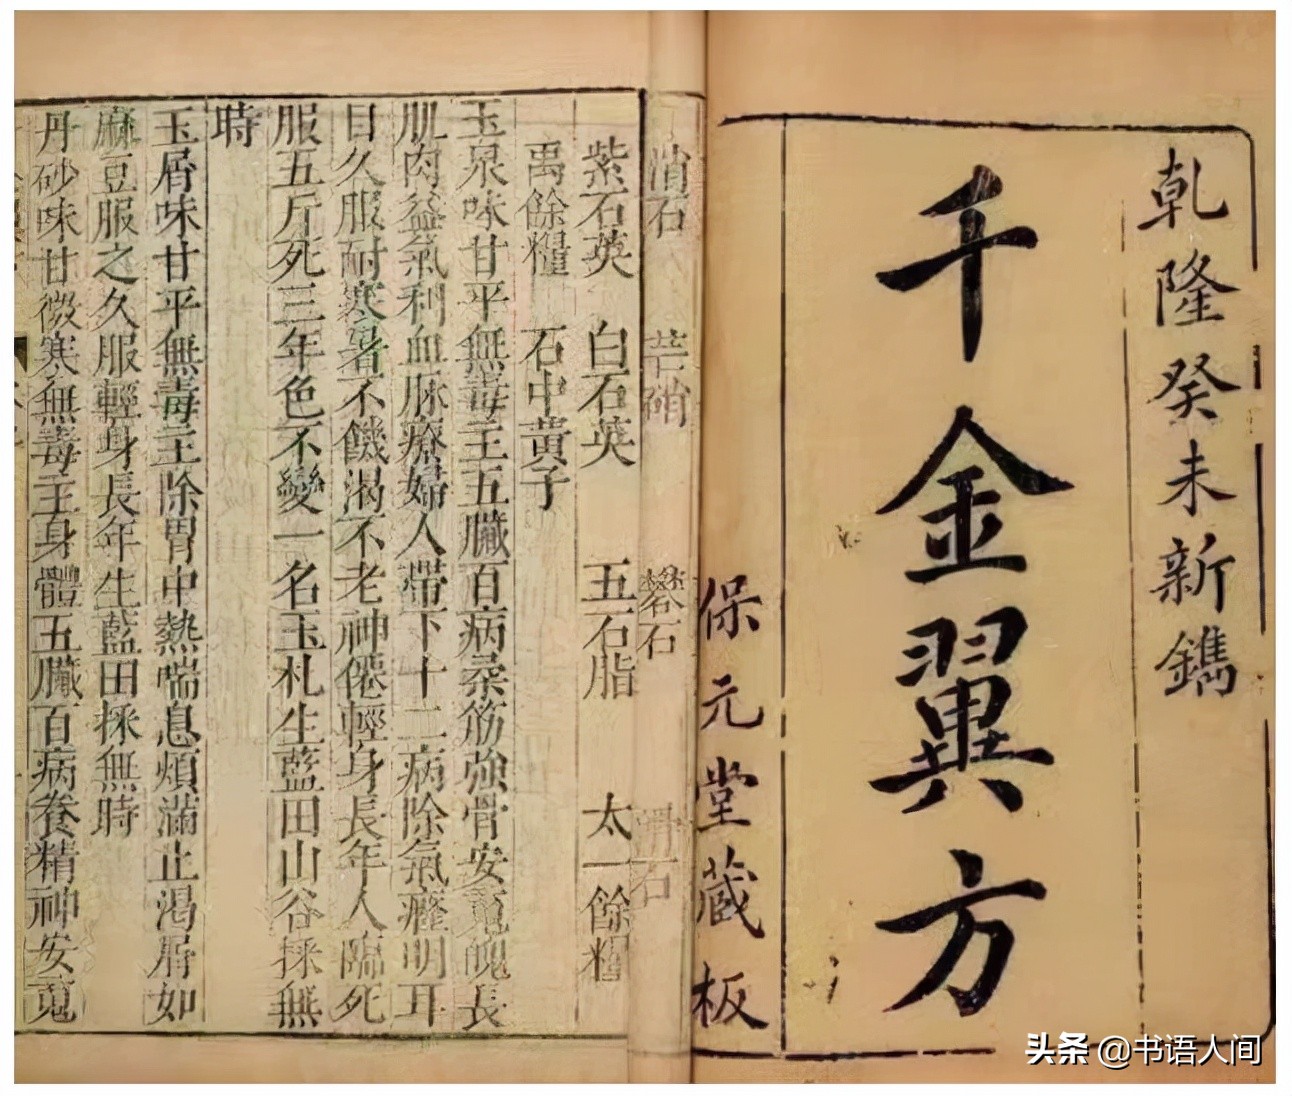 乾隆癸未新鐫
千金翼方
保元堂藏板
消石 芒硝 礬石 滑石
紫石英 白石英 五石脂 太一餘糧
禹餘糧 石中黃子
玉泉味甘平無毒主五臟百病柔筋強骨安䰟魄長
肌肉益氣利血脉療婦人帶下十二病除氣癃明耳
目久服耐寒暑不饑渴不老神僊輕身長年人臨死
服五斤死三年色不變一名玉札生藍田山谷採無
時
玉屑味甘平無毒主除胃中熱喘息煩滿止渴屑如
麻豆服之久服輕身長年生藍田採無時
丹砂味甘微寒無毒主身體五臟百病養精神安䰟
头条 @书语人间